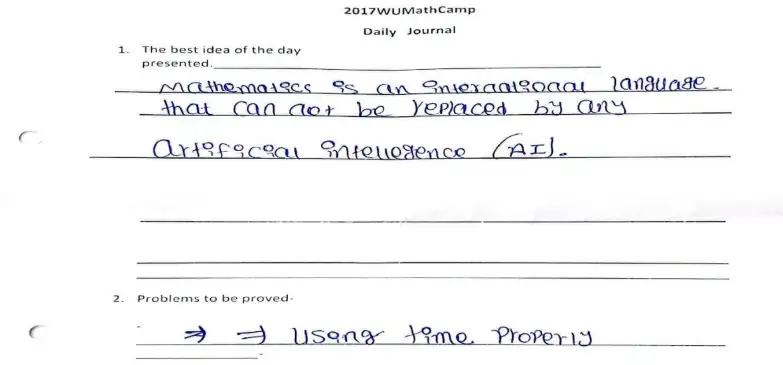 2017WUMathCamp
Daily Journal
1. The best idea of the day
presented.
Mathematics is an international language.
that can not be replaced by any
Artificial intelligence (AI).
2. Problems to be proved-
⇒ ⇒ Using time Properly